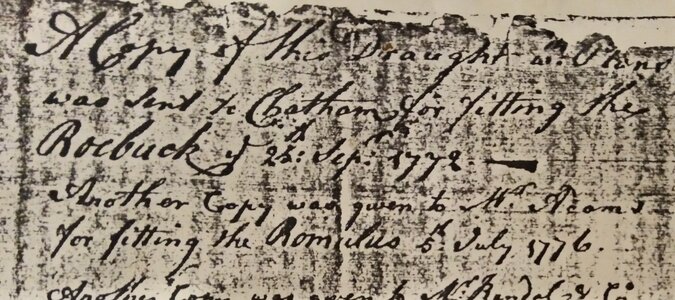 A Copy of this Draught
was sent to Chatham for fitting the
Roebuck yᵉ 25ᵗʰ: Sepᵗʳ: 1772.
Another Copy was given to Mʳ. Adams
for fitting the Romulus 5ᵗʰ July 1776.
Another Copy was given to Mʳ